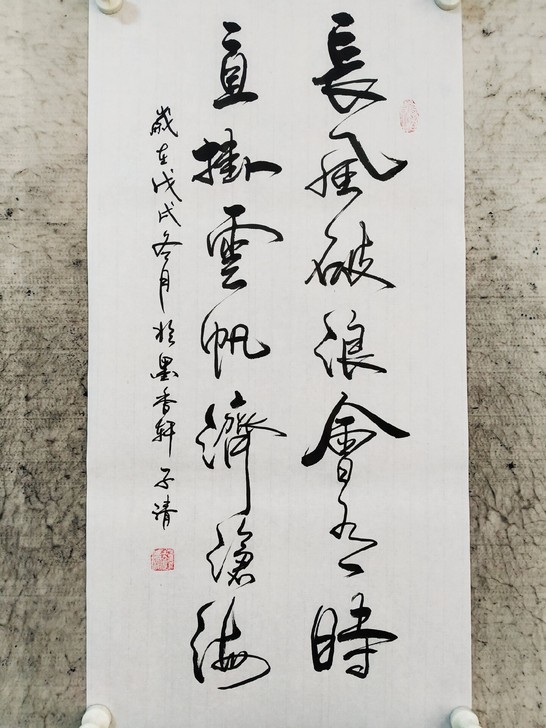 長風破浪會有時
直掛雲帆濟滄海
歲在戊戌冬月於墨香軒子清